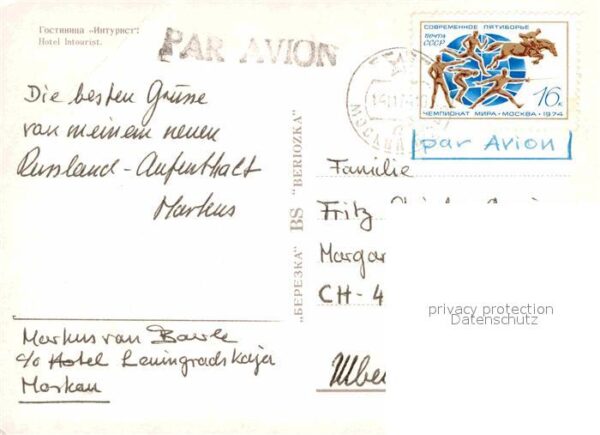 Гостиница «Интурист».
Hotel Intourist.
PAR AVION
СОВРЕМЕННОЕ ПЯТИБОРЬЕ
ПОЧТА
СССР
16к
ЧЕМПИОНАТ МИРА • МОСКВА • 1974
МОСКВА
par Avion
Die besten Grüsse
von meinem neuen
Russland-Aufenthalt
Markus
"БЕРЕЗКА" BS "BERIOZKA"
Familie
Fritz
Margar
CH-4
privacy protection
Datenschutz
Markus van
c/o Hotel Leningradskaja
Moskau